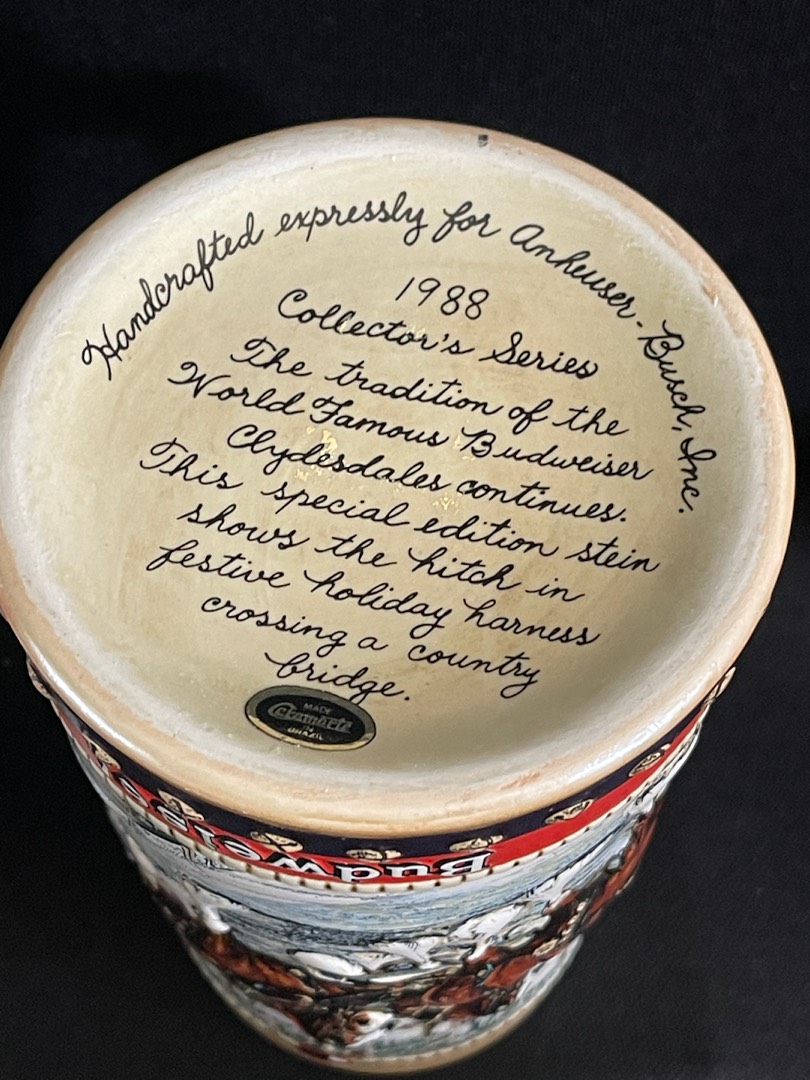 Handcrafted expressly for Anheuser-Busch, Inc.
1988
Collector's Series
The tradition of the
World Famous Budweiser
Clydesdales continues.
This special edition stein
shows the hitch in
festive holiday harness
crossing a country
bridge.
MADE
Ceramarte
IN
BRAZIL
Budweiser